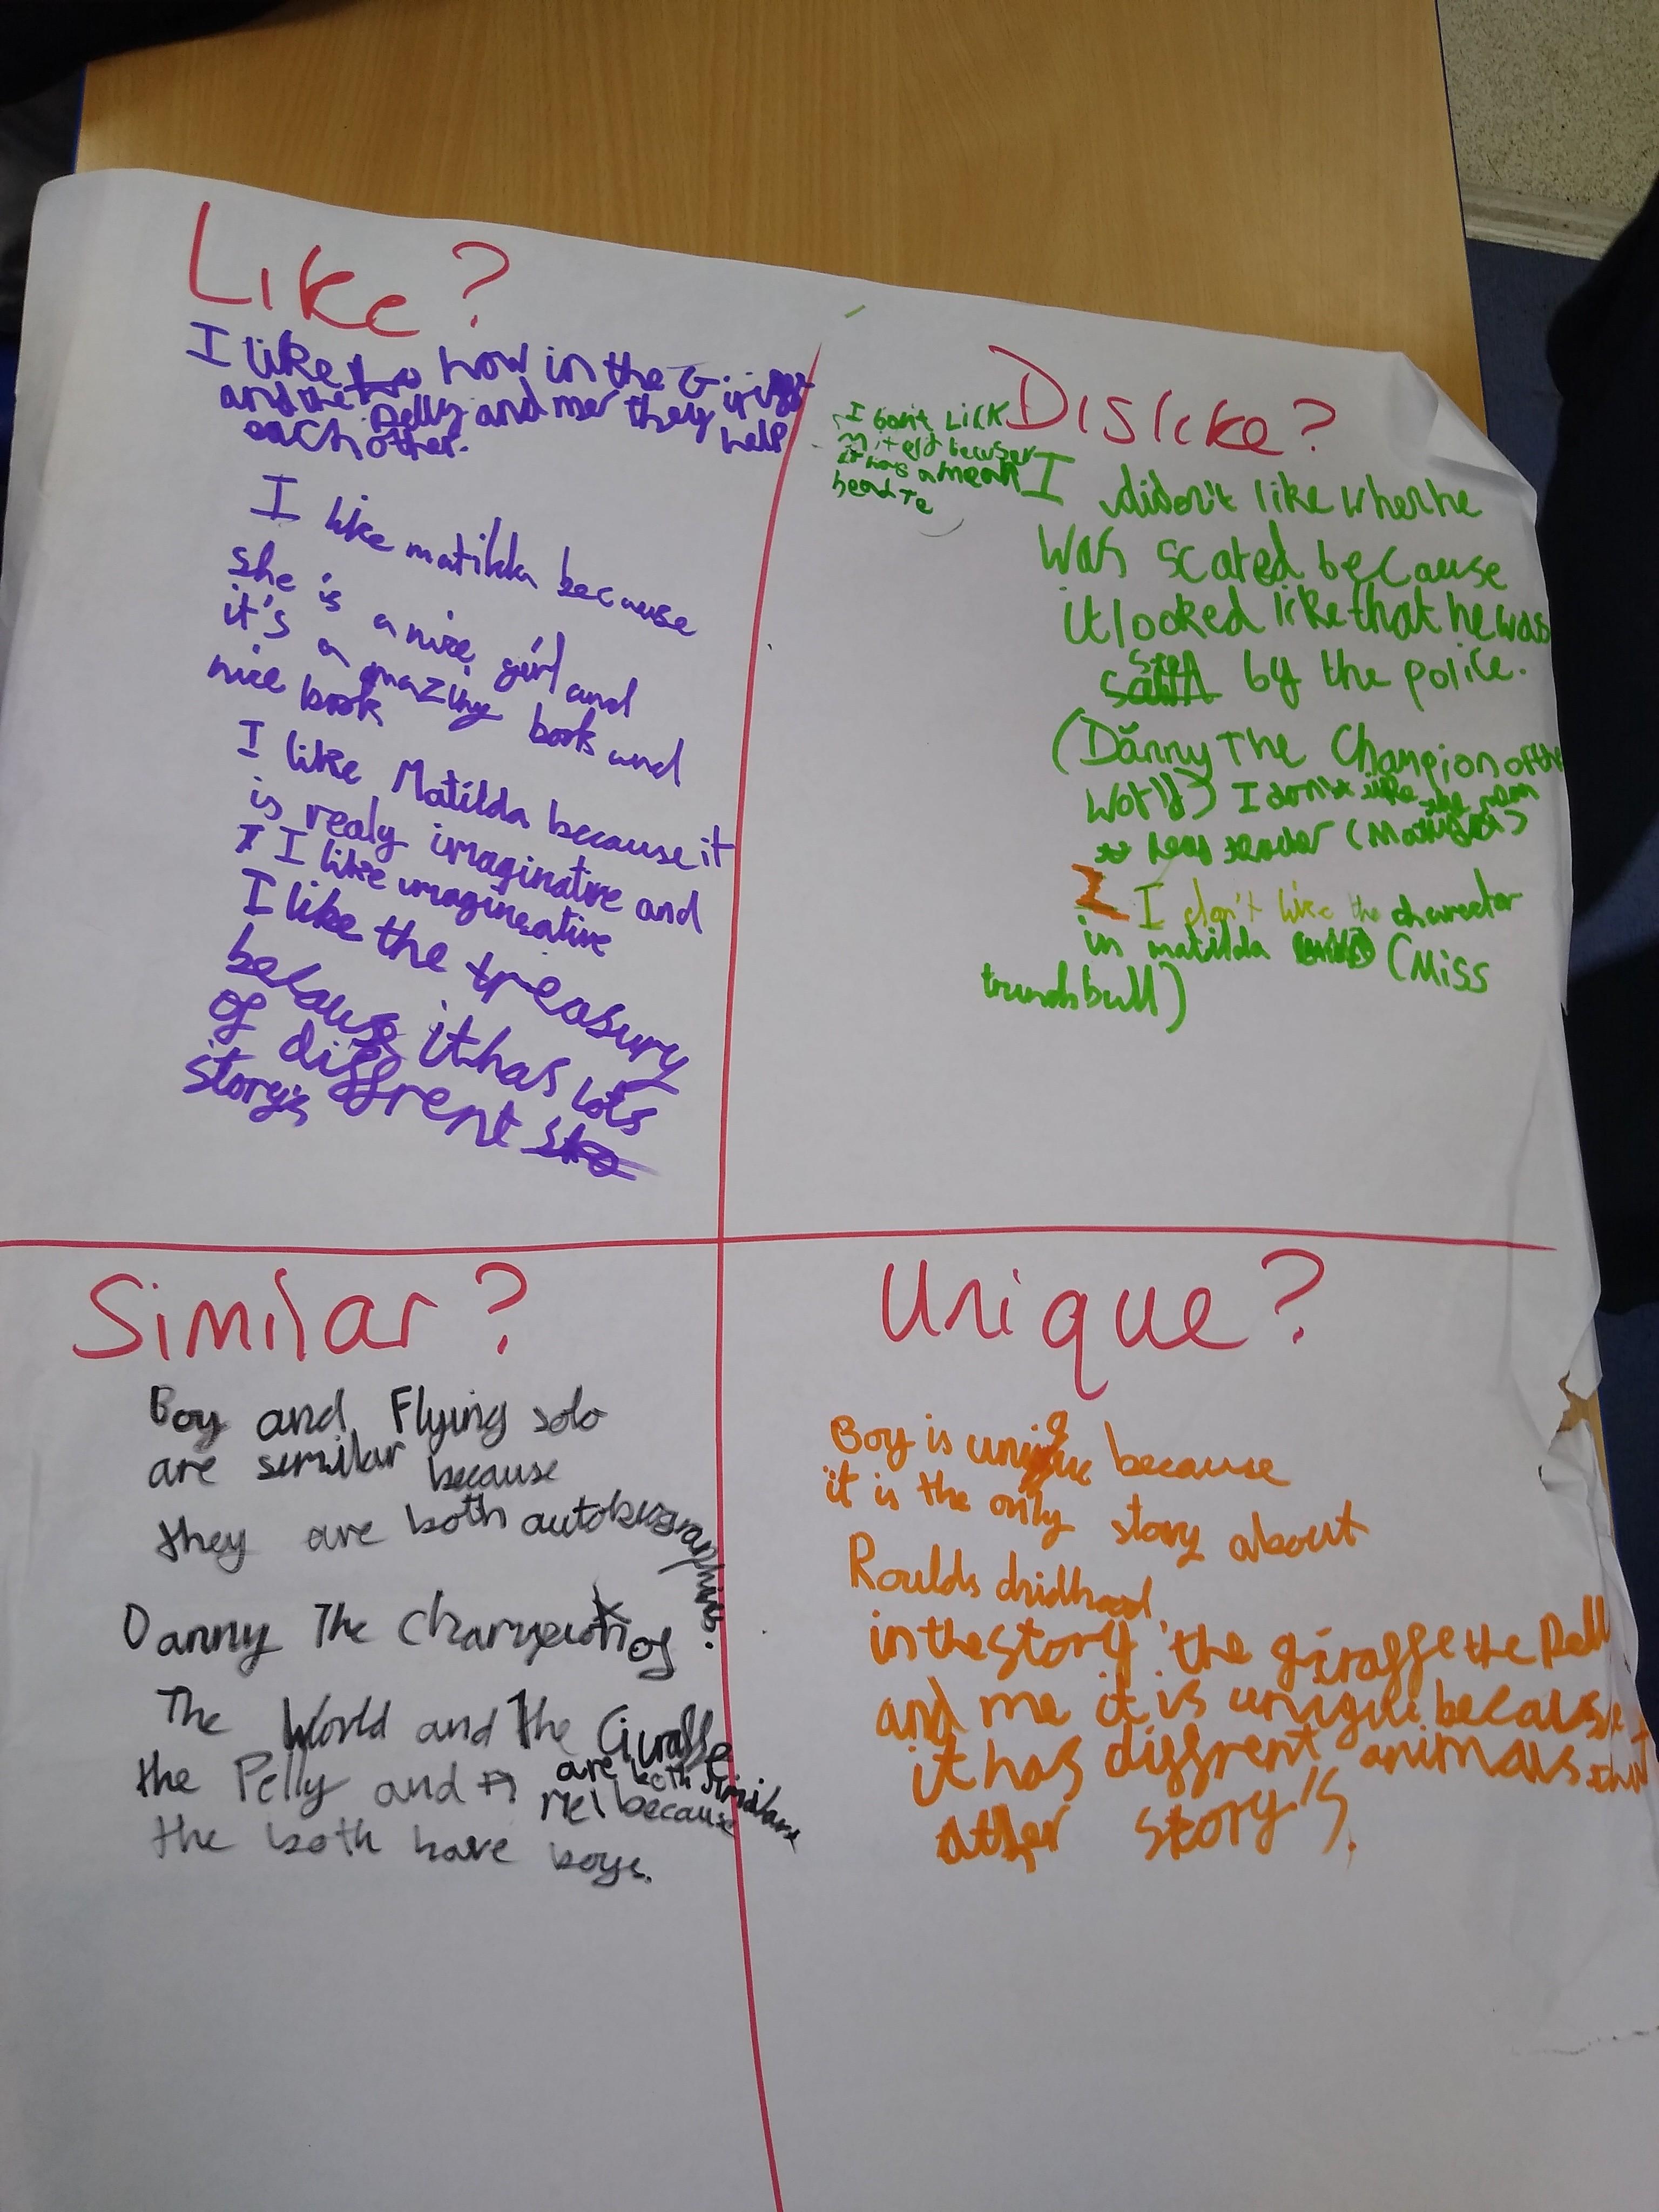 Like?
I like to how in the Giraffe
and the Pelly and me they
help
each other.
I like matilda because
she is a nice girl and
it's a amazing book and
nice book
I like Matilda because it
is realy imaginative and
I like imagineative
I like the treasury
because it has lots
of diffrent sto
storys
Dislike?
I don't Lick
it has a mean
I didon't like when he
was scared because
it looked like that he was
by the police.
(Danny The Champion of the
World) I don't like the mean
head teacher (Matilda)
I I don't like the charecter
in matilda (Miss
trunchbull)
Similar?
Boy and Flying solo
are similar because
they are both autobiographies.
Danny The Champion of
The World and The Giraffe
the Pelly and Me are both similar because
the both have boys.
Unique?
Boy is unique because
it is the only story about
Roulds chidhood
in the story the giraffe the Pelly
and me it is unique because
it has diffrent animals that
other story's.